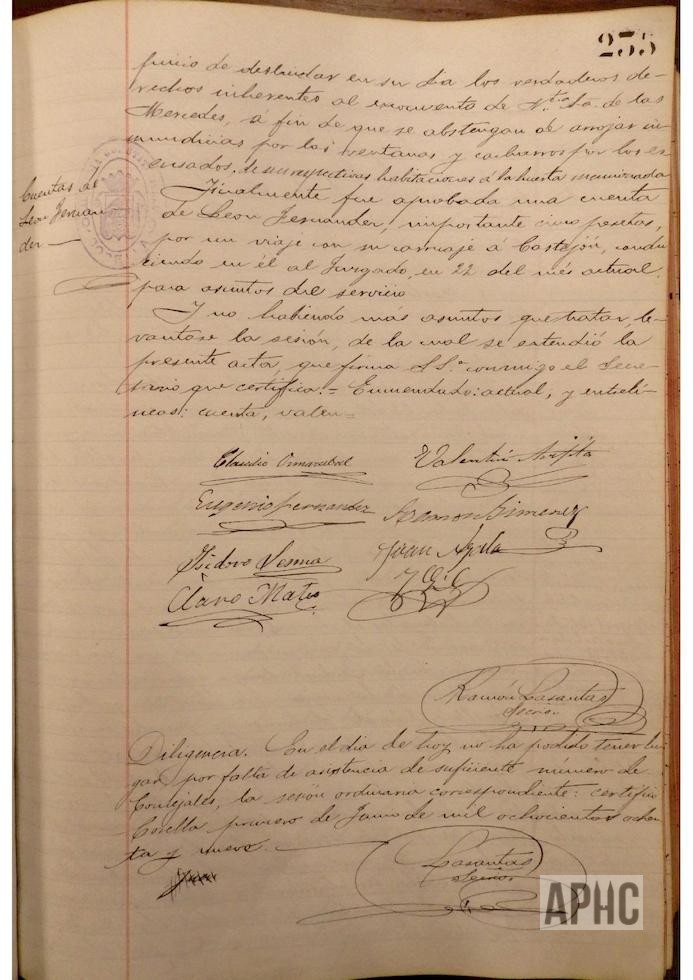 235
juicio de deslindar en su dia los verdaderos de-
rechos inherentes al exconvento de Ntra. Sa. de las
Mercedes, á fin de que se abstengan de arrojar in-
mundicias por las ventanas y cacharros por los ex-
cusados, de sus respectivas habitaciones á la huerta mencionada
Cuentas de
Leon Fernan
der
Finalmente fue aprobada una cuenta
de Leon Fernander, importante cinco pesetas,
por un viaje con su carruaje á Castejón, condu-
ciendo en él al Juzgado, en 22 del més actual,
para asuntos del servicio
Y no habiendo mas asuntos que tratar, le-
vantose la sesión, de la cual se estendió la
presente acta, que firma S.Sa. conmigo el Secre-
tario que certifica.= Enmendado: actual, y entreli-
neas: cuenta, valen=
Claudio Valentín Arpita
Eugenio Fernandez Ramon Gimenez
Isidoro Sesma Juan Ayala
Claro Mateo
Ramón Lasantas
Secrio.
Diligencia. En el dia de hoy no ha podido tener lu-
gar, por falta de asistencia de suficiente número de
Concejales, la sesión ordinaria correspondiente: certifico
Corella primero de Junio de mil ochocientos ochen-
ta y nueve.
Lasantas
Secrio.
APHC